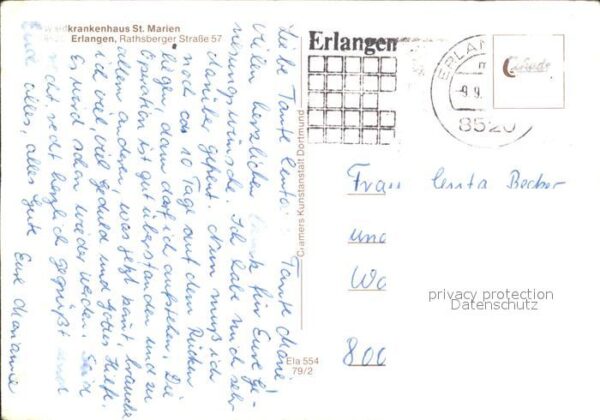 Waldkrankenhaus St. Marien
8520 Erlangen, Rathsberger Straße 57
Liebe Tante Centa, Tante Marie
Vielen herzlichen Dank für Eure Ge-
nesungswünsche. Ich habe mich sehr
darüber gefreut. Nun muß ich
noch ca 10 Tage auf dem Rücken
liegen, dann darf ich aufstehen. Die
Operation ist gut überstanden und zu
allem anderen, was jetzt kommt, brauche
ich viel, viel Geduld und Gottes Hilfe.
Es wird schon wieder werden. Seid
recht, recht herzlich gegrüßt und
Euch alles, alles Gute Eure Marianne
Cramers Kunstanstalt Dortmund
Ela 554
79/2
Erlangen
ERLAN
-9.9.
8520
Frau Centa Becker
und
Wo
800
privacy protection
Datenschutz